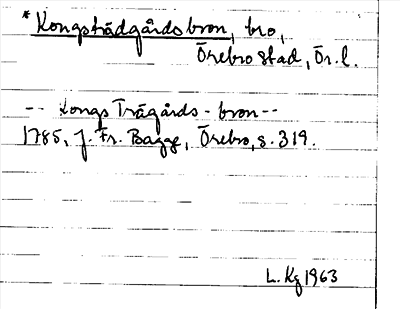 * Kongsträdgårdsbron, bro,
Örebro stad, Ör. l.
-- Kongs Trägårds-bron --
1785, J. Fr. Bagge, Örebro, s. 319.
L. Kg 1963